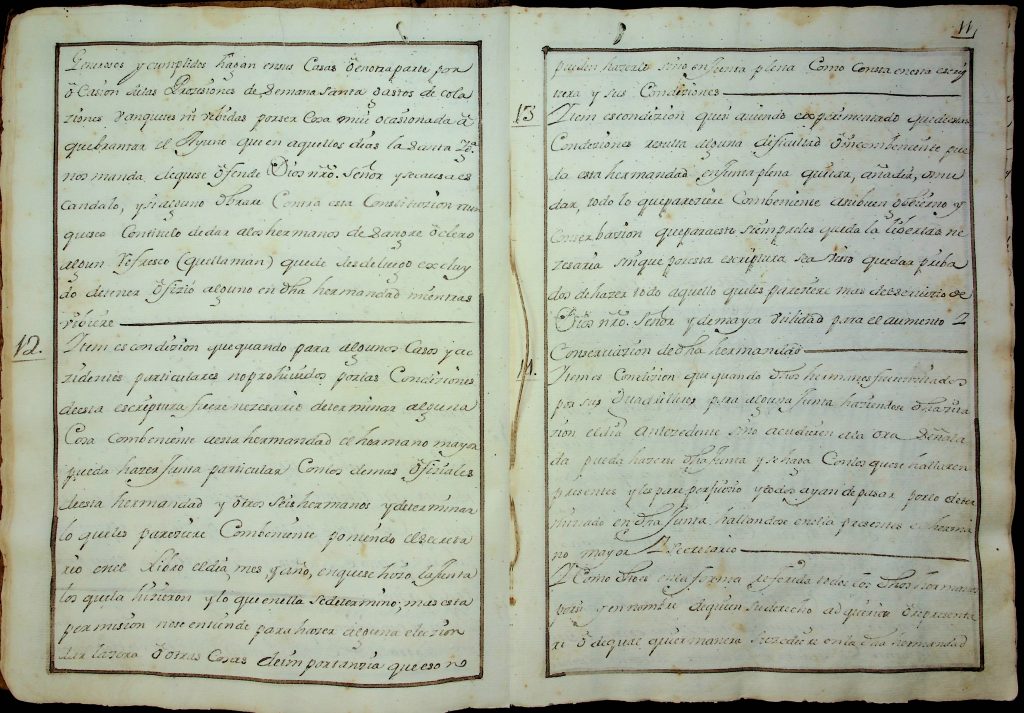 Penitroses y cumplidos hagan ensus Casas ô enotra parte por
ô Casion delas Prozisiones de Semana Santa Gastos de cola
ziones Vanquetes ni vebidas porser Cosa mui ocasionada â
quebrantar el Ayuno que en aquellos dias la Santa Yg.ª
nos manda, de que se ôfende Dios nr̃o. Señor y se causa es
candalo, y si alguno obrare Contra esta Constituzion aun
que sea Contitulo dedar alos hermanos de Sangre ô clero
algun refresco (que llaman) quede desdeluego exclui
do detener ôfizio alguno en dh̃a hermandad mientras
vibiere
12. Ytem es condizion que quando para algunos Casos y ac
zidentes particulares no prohividos por las Condiziones
desta escriptura fuere nezesario determinar alguna
Cosa combeniente aesta hermandad el hermano mayor
pueda hazer Junta particular Conlos demas ôfiziales
desta hermandad y ôtros seis hermanos y determinar
lo que les pareziere Combeniente poniendo el secreta
rio en el Libro el dia, mes, y año, en que se hizo la Junta
los que la hizieron y lo que en ella se determino; mas esta
permision no se entiende para hazer alguna elezion
dar la zera ô otras Cosas de importanzia que eso no
11
pueden hazerlo sino en Junta plena Como Consta en esta escrip
tura y sus Condiziones
13 Ytem es condizion que si quiendo experimentado que destas
Condiziones resulta alguna dificultad ô incombeniente pue
da esta hermandad en Junta plena quitar, añadir, o mu
dar, todo lo que pareziere Combeniente asubuen Gobierno y
Conserbazion que para esto siempre les queda la libertad ne
zesaria sin que por esta escriptura sea visto quedar priba
dos de hazer todo aquello que les pareziere mas del servizio de
Dios nr̃o. Señor y de mayor utilidad para el aumento y
Conservazion de dh̃a hermandad
14. Ytem es Condizion que quando dh̃os hermanos fueren zitados
por sus quadrilleros para alguna Junta haziendose dh̃a zita
zion el dia Antezedente sino acudieren ala ora Señala
da pueda hazerse dh̃a Junta y se haga Conlos que se hallaren
presentes y les pare perjuizio y todos ayan de pasar por lo deter
minado en dh̃a Junta, hallandose en ella presentes el herma
no mayor y Secretario
Y Como dh̃o es en la forma referida todos los dh̃os hermanos
por si y en nombre de quien su derecho ad quiriere ô representa
re ô de qual quier manera suzediere en la dh̃a hermandad